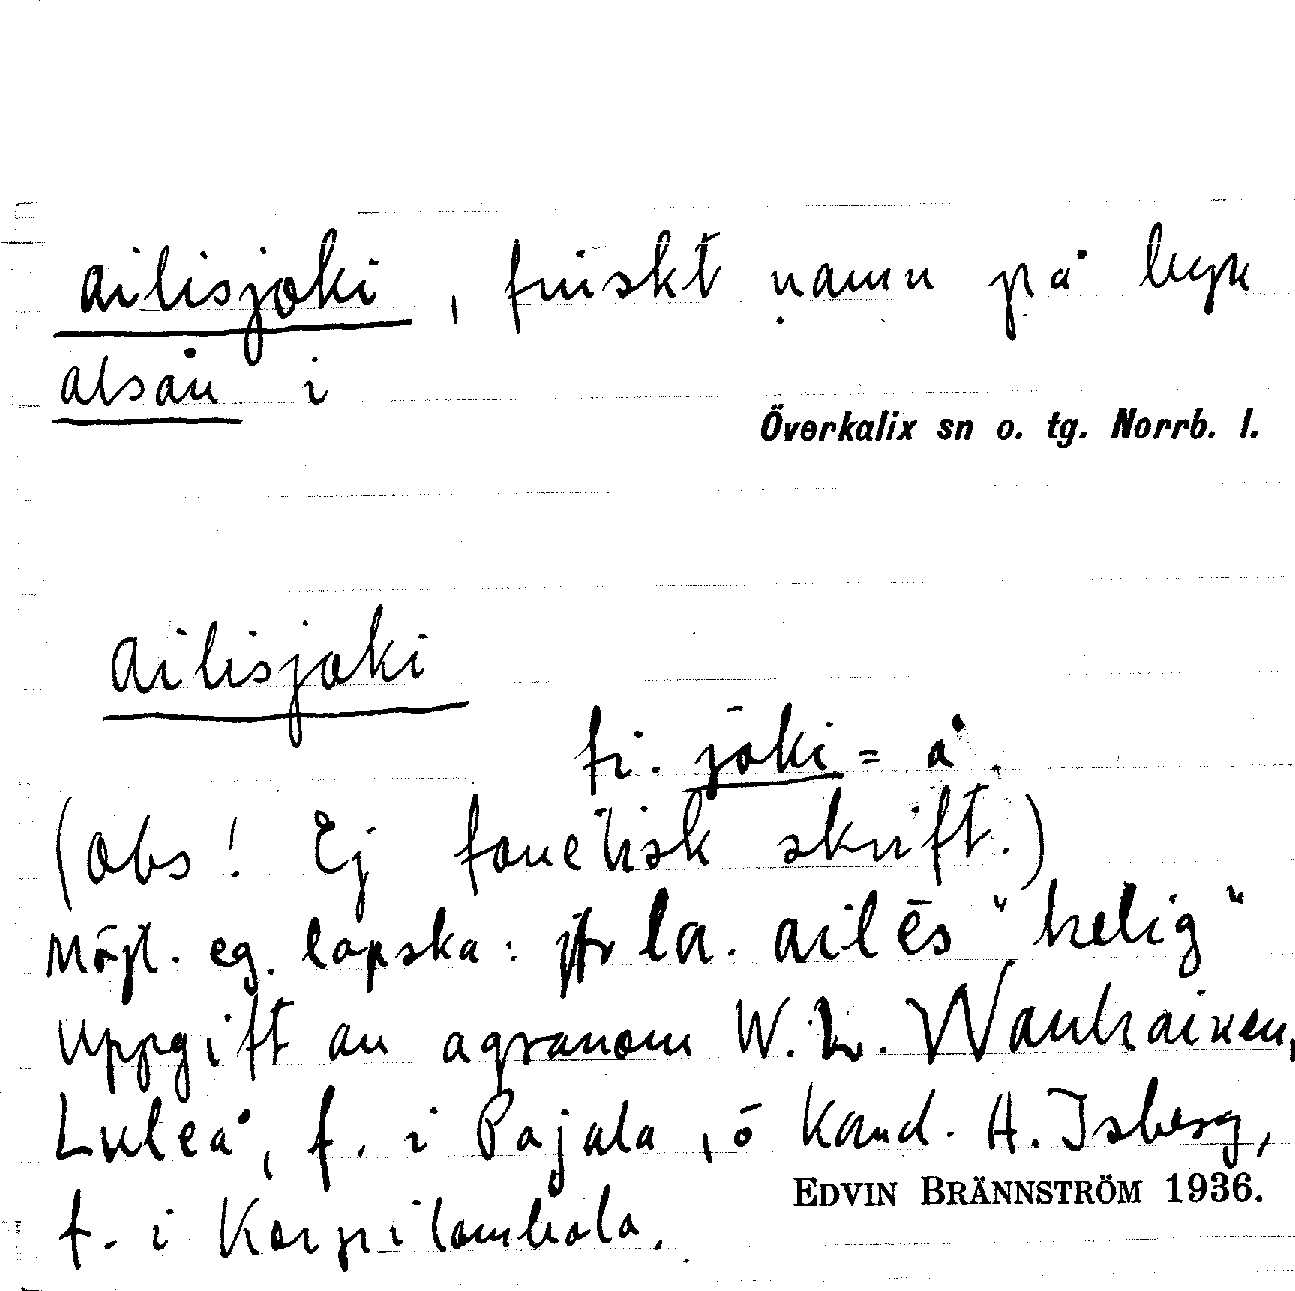 ailisjoki, finskt namn på byn
alsån i
Överkalix sn o. tg. Norrb. l.
ailisjoki
fi. joki = å.
(Obs! Ej fonetisk skrift.)
Möjl. eg. lapska: jfr la. ailēs "helig"
Uppgift av agronom W. L. Wanhainen,
Luleå, f. i Pajala, o kand. H. Isberg,
EDVIN BRÄNNSTRÖM 1936.
f. i Korpilombolo.